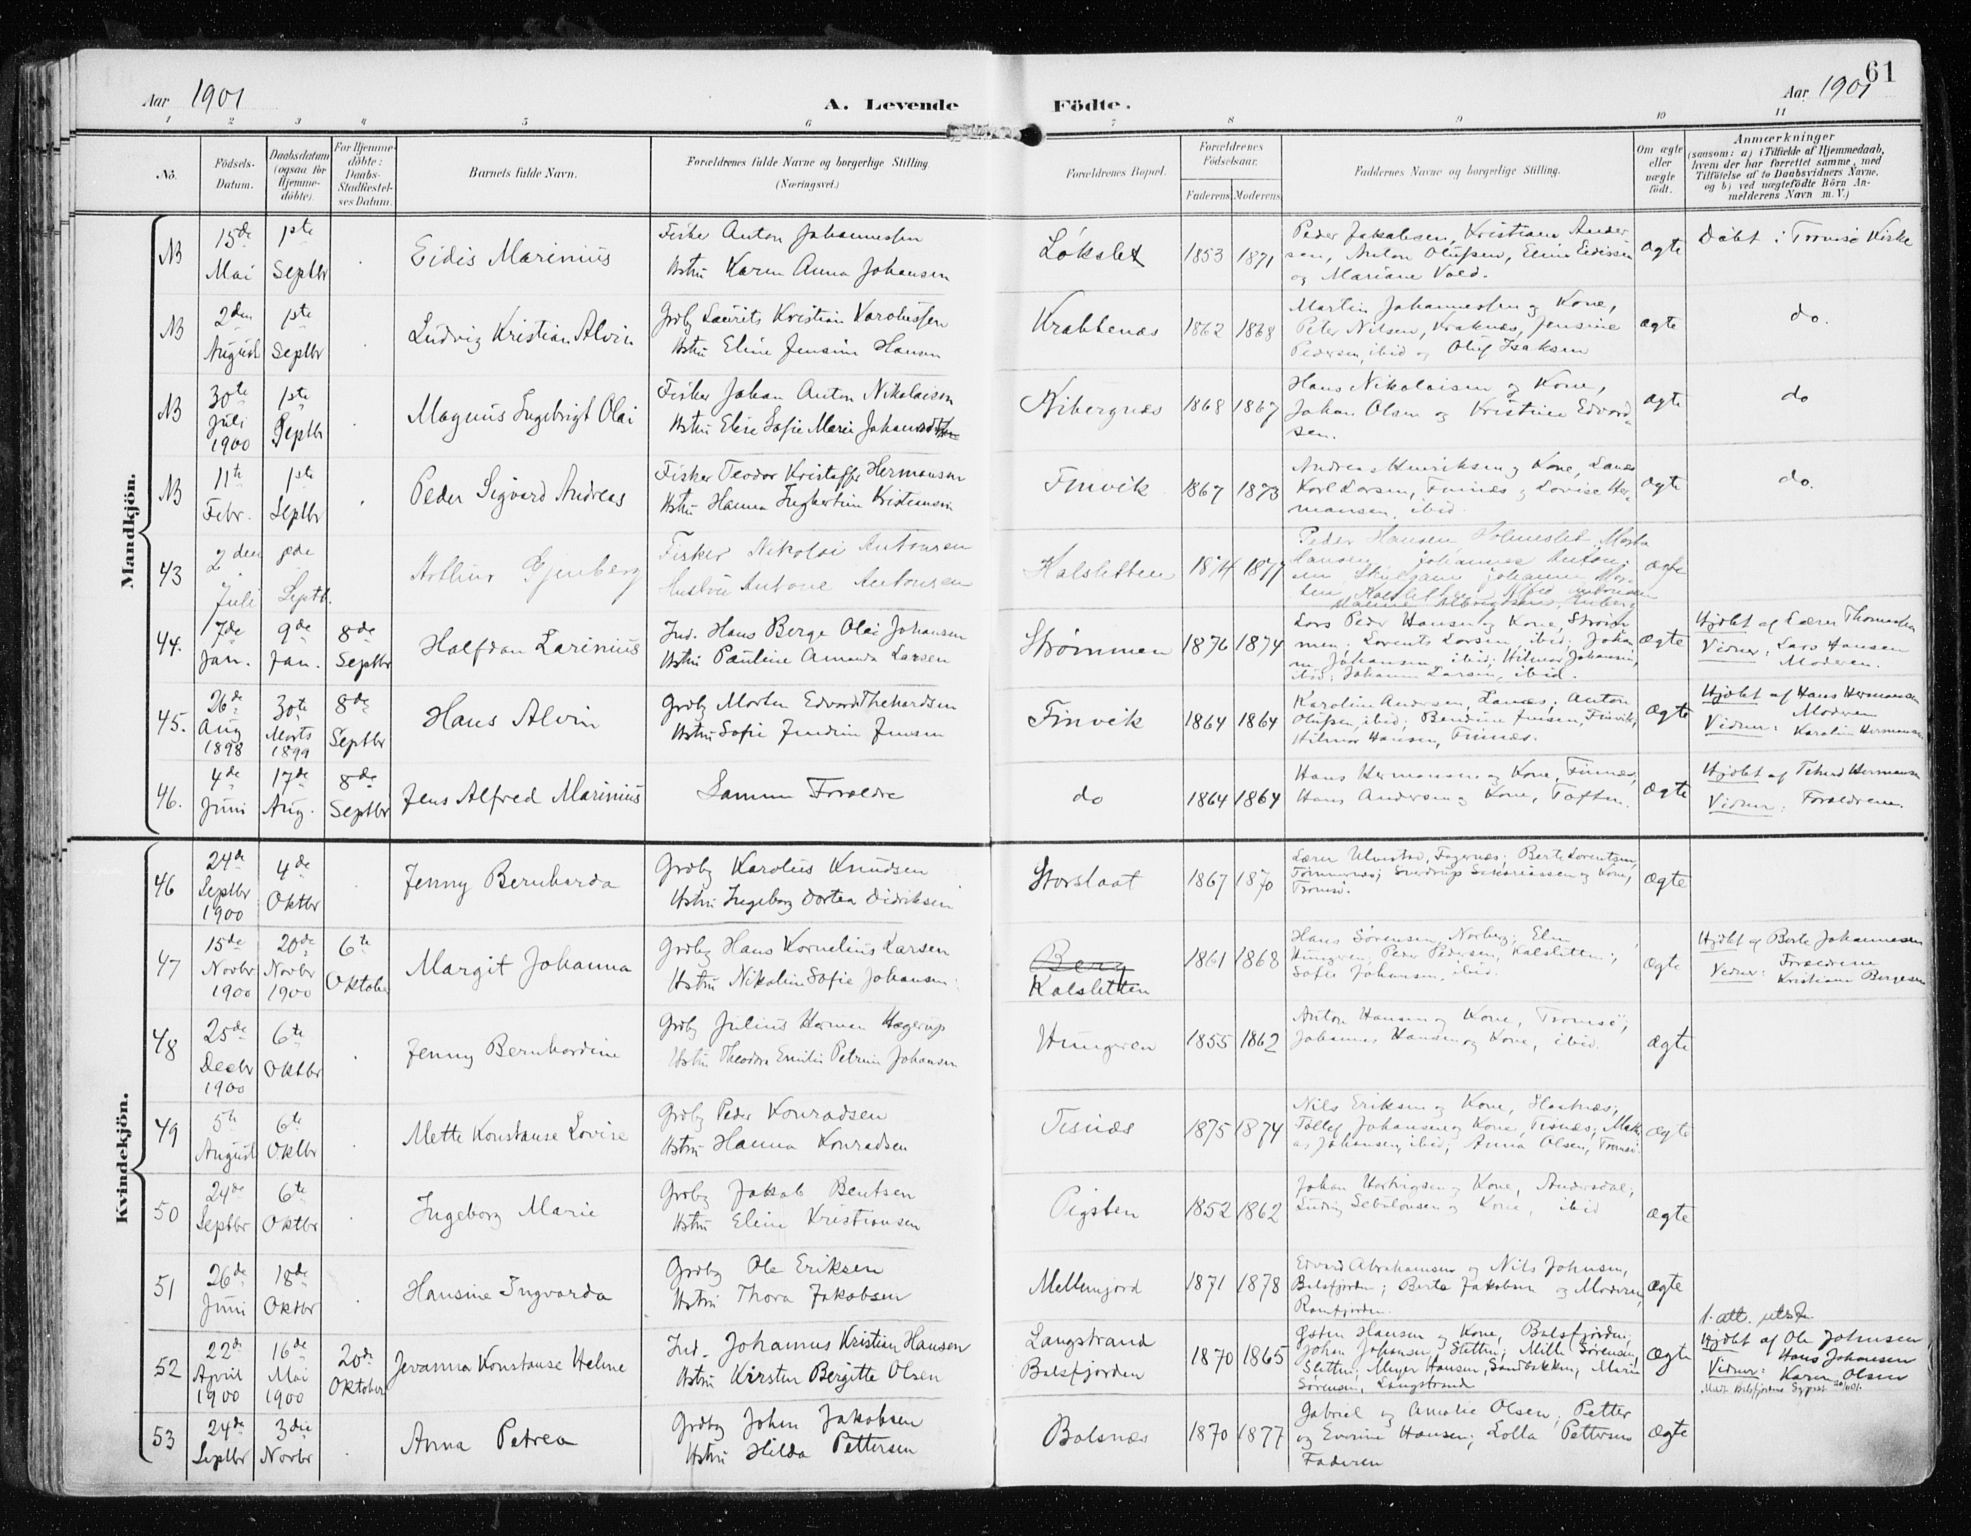 Aar 1901
A. Levende Födte.
61
Aar 1901
1 2 3 4 5 6 7 8 9 10 11
No.
Födsels-Datum.
Daabsdatum (ogsaa for Hjemmedöbte).
For Hjemmedöbte: Daabs-Stadfæstelses Datum.
Barnets fulde Navn.
Forældrenes fulde Navne og borgerlige Stilling.
(Næringsvei.)
Forældrenes Bopæl.
Forældrenes Födselsaar.
Faderens.
Moderens.
Faddernes Navne og borgerlige Stilling.
Om ægte eller uægte födt.
Anmærkninger
(saasom: a) i Tilfælde af Hjemmedaab, hvem der har forrettet samme, med Tilföielse af to Daabsvidners Navne, og b) ved uægtefödte Börn Anmelderens Navn m. V.)
Mandkjön.
NB 15de Mai 1ste Septbr Eidis Marinius
Fisker Anton Johannessen
Hstru Karen Anna Johansen
Løkslet 1853 1871
Peder Jakobsen, Kristiane Andersen, Anton Olufsen, Eline Eidissen
og Mariane Vold.
ægte
Døbt i Tromsø Kirke
NB 2den August 1ste Septbr Ludvig Kristian Alvin
Grdbr Laurits Kristian Karolussen
Hstru Eline Jensine Hansen
Krabbenæs 1862 1868
Martin Johannessen og Kone,
Peter Nilsen, Kraknæs, Jensine
Pedersen, ibid og Oluf Isaksen
ægte
do.
NB 30te Juli 1900 1ste Septbr Magnus Ingebrigt Olai
Fisker Johan Anton Nikolaisen
Hstru Elise Sofie Marie
Kibergnes 1868 1867
Hans Nikolaisen og Kone,
Johan Olsen og Kristine Edvardsen.
ægte
do
NB 11te Febr. 1ste Septbr Peder Sigvard Andreas
Fisker Teodor Kristoffer Hermansen
Hstru Hanna Ingbertine Kristiansen
Finvik 1867 1873
Andreas Henriksen og Kone, Lanes
Karl Larsen, Finnæs og Lovise Hermansen, ibid.
ægte
do.
43 2den Juli Septbr. Arthur Gjenberg
Fisker Nikolai Antonsen
Hustru Antone Antonsen
Kalsletten 1874 1877
Peder Hansen Holmeslet,
ægte
44. 7de Jan. 9de Jan. 8de Septbr Halfdan Larinius
Ind. Hans Berge Olai Johansen
Hstru Pauline Amanda Larsen
Strømmen 1876 1874
Lars Peder Hansen og Kone, Strømmen, Lorents Larsen, ibid; Johan
Johansen, ibid; Hilmar Johansen,
ibid; Johanna Larsen, ibid.
ægte
Hjdbt af Lærer Thomassen
Vidner: Lars Hansen
Moderen.
45. 26de Aug 1898 30te Marts 1899 8de Septbr Hans Alvin
Grdbr Morten Edvard
Hstru Sofie Jensen
Finvik 1864 1864
Karoline Andersen, Lanæs; Anton
Olufsen, ibid; Bendine Jensen, Finvik,
Hilmar Hansen, Finnæs.
ægte
Hjdbt af Hans Hermansen
Moderen
Vidner: Karolin Hermansen
46. 4de Juni 17de Aug. 8de Septbr Jens Alfred Marinius
Samme Forældre
do 1864 1864
Hans Hermansen og Kone, Finnæs,
Hans Andersen og Kone, Toften.
ægte
Hjdbt af Hermansen
Vidner: Forældrene.
Kvindekjön.
46 24de Septbr 1900 4de Oktbr Jenny Bernharda
Grdbr Karolus Knudsen
Hstru Ingeborg Dortea Didriksen
Storslaat 1867 1870
Lærer Ulvestad, Fagernæs; Berte Lorentsen,
Tømmernæs; Sakariassen og Kone,
Tromsø.
ægte
47 15de Novbr 1900 20de Novbr 1900 6te Oktober Margit Johanna
Grdbr Hans Kornelius Larsen
Hstru Nikoline Sofie Johansen
Berg
Kalsletten 1861 1868
Hans Sørensen, Norberg; Elen
Hungren; Peder Pedersen, Kalsletten;
Sofie Johansen, ibid.
ægte
Hjdbt af Berte Johannesen
Vidner: Forældrene
Kristiane Bergesen
48 25de Decbr 1900 6te Oktbr Jenny Bernhardine
Grdbr Julius Herman Hagerup
Hstru Theodora Emilie Petrine Johansen
Hungren 1855 1862
Anton Hansen og Kone, Tromsø;
Johannes Hansen og Kone, ibid.
ægte
49 5te August 6te Oktbr Mette Konstanse Lovise
Grdbr Peder Konradsen
Hstru Hanna Konradsen
Tisnæs 1875 1874
Nils Eriksen og Kone,
Tollef Johansen og Kone, Tisnæs;
Johansen, ibid; Anna Olsen, Tromsø.
ægte
50 24de Septbr 6te Oktbr Ingeborg Marie
Grdbr Jakob Bentsen
Hstru Eline Kristiansen
Pigsten 1852 1862
Johan Hartvigsen og Kone, Andersdal;
Ludvig Sebulonsen og Kone, ibid
ægte
51 26de Juni 18de Oktbr Hansine Ingvarda
Grdbr Ole Eriksen
Hstru Thora Jakobsen
Mellemjord 1871 1878
Edvard Abrahamsen og Nils Johnsen,
Balsfjorden; Berte Jakobsen og Moderen,
Ramfjorden.
ægte
52 22de April 1900 16de Mai 1900 20de Oktober Jevanna Konstanse Helene
Ind. Johannes Kristian Hansen
Hstru Kirsten Bergitte Olsen
Langstrand
Balsfjorden 1870 1865
Østen Hansen og Kone, Balsfjorden;
Johan Johansen, Sletten; Milla Sørensen,
Sletten; Meyer Hansen, Sandbakken; Marie
Sørensen, Langstrand
ægte
1. att. utst.
Hjdbt af Ole Johnsen
Vidner: Hans Johansen
Karen Olsen
53 24de Septbr 3die Novbr Anna Petrea
Grdbr Johan Jakobsen
Hstru Hilda Pettersen
Balsnæs 1870 1877
Gabriel og Amalie Olsen; Petter
og Everine Hansen; Lolla Pettersen
Faderen
ægte